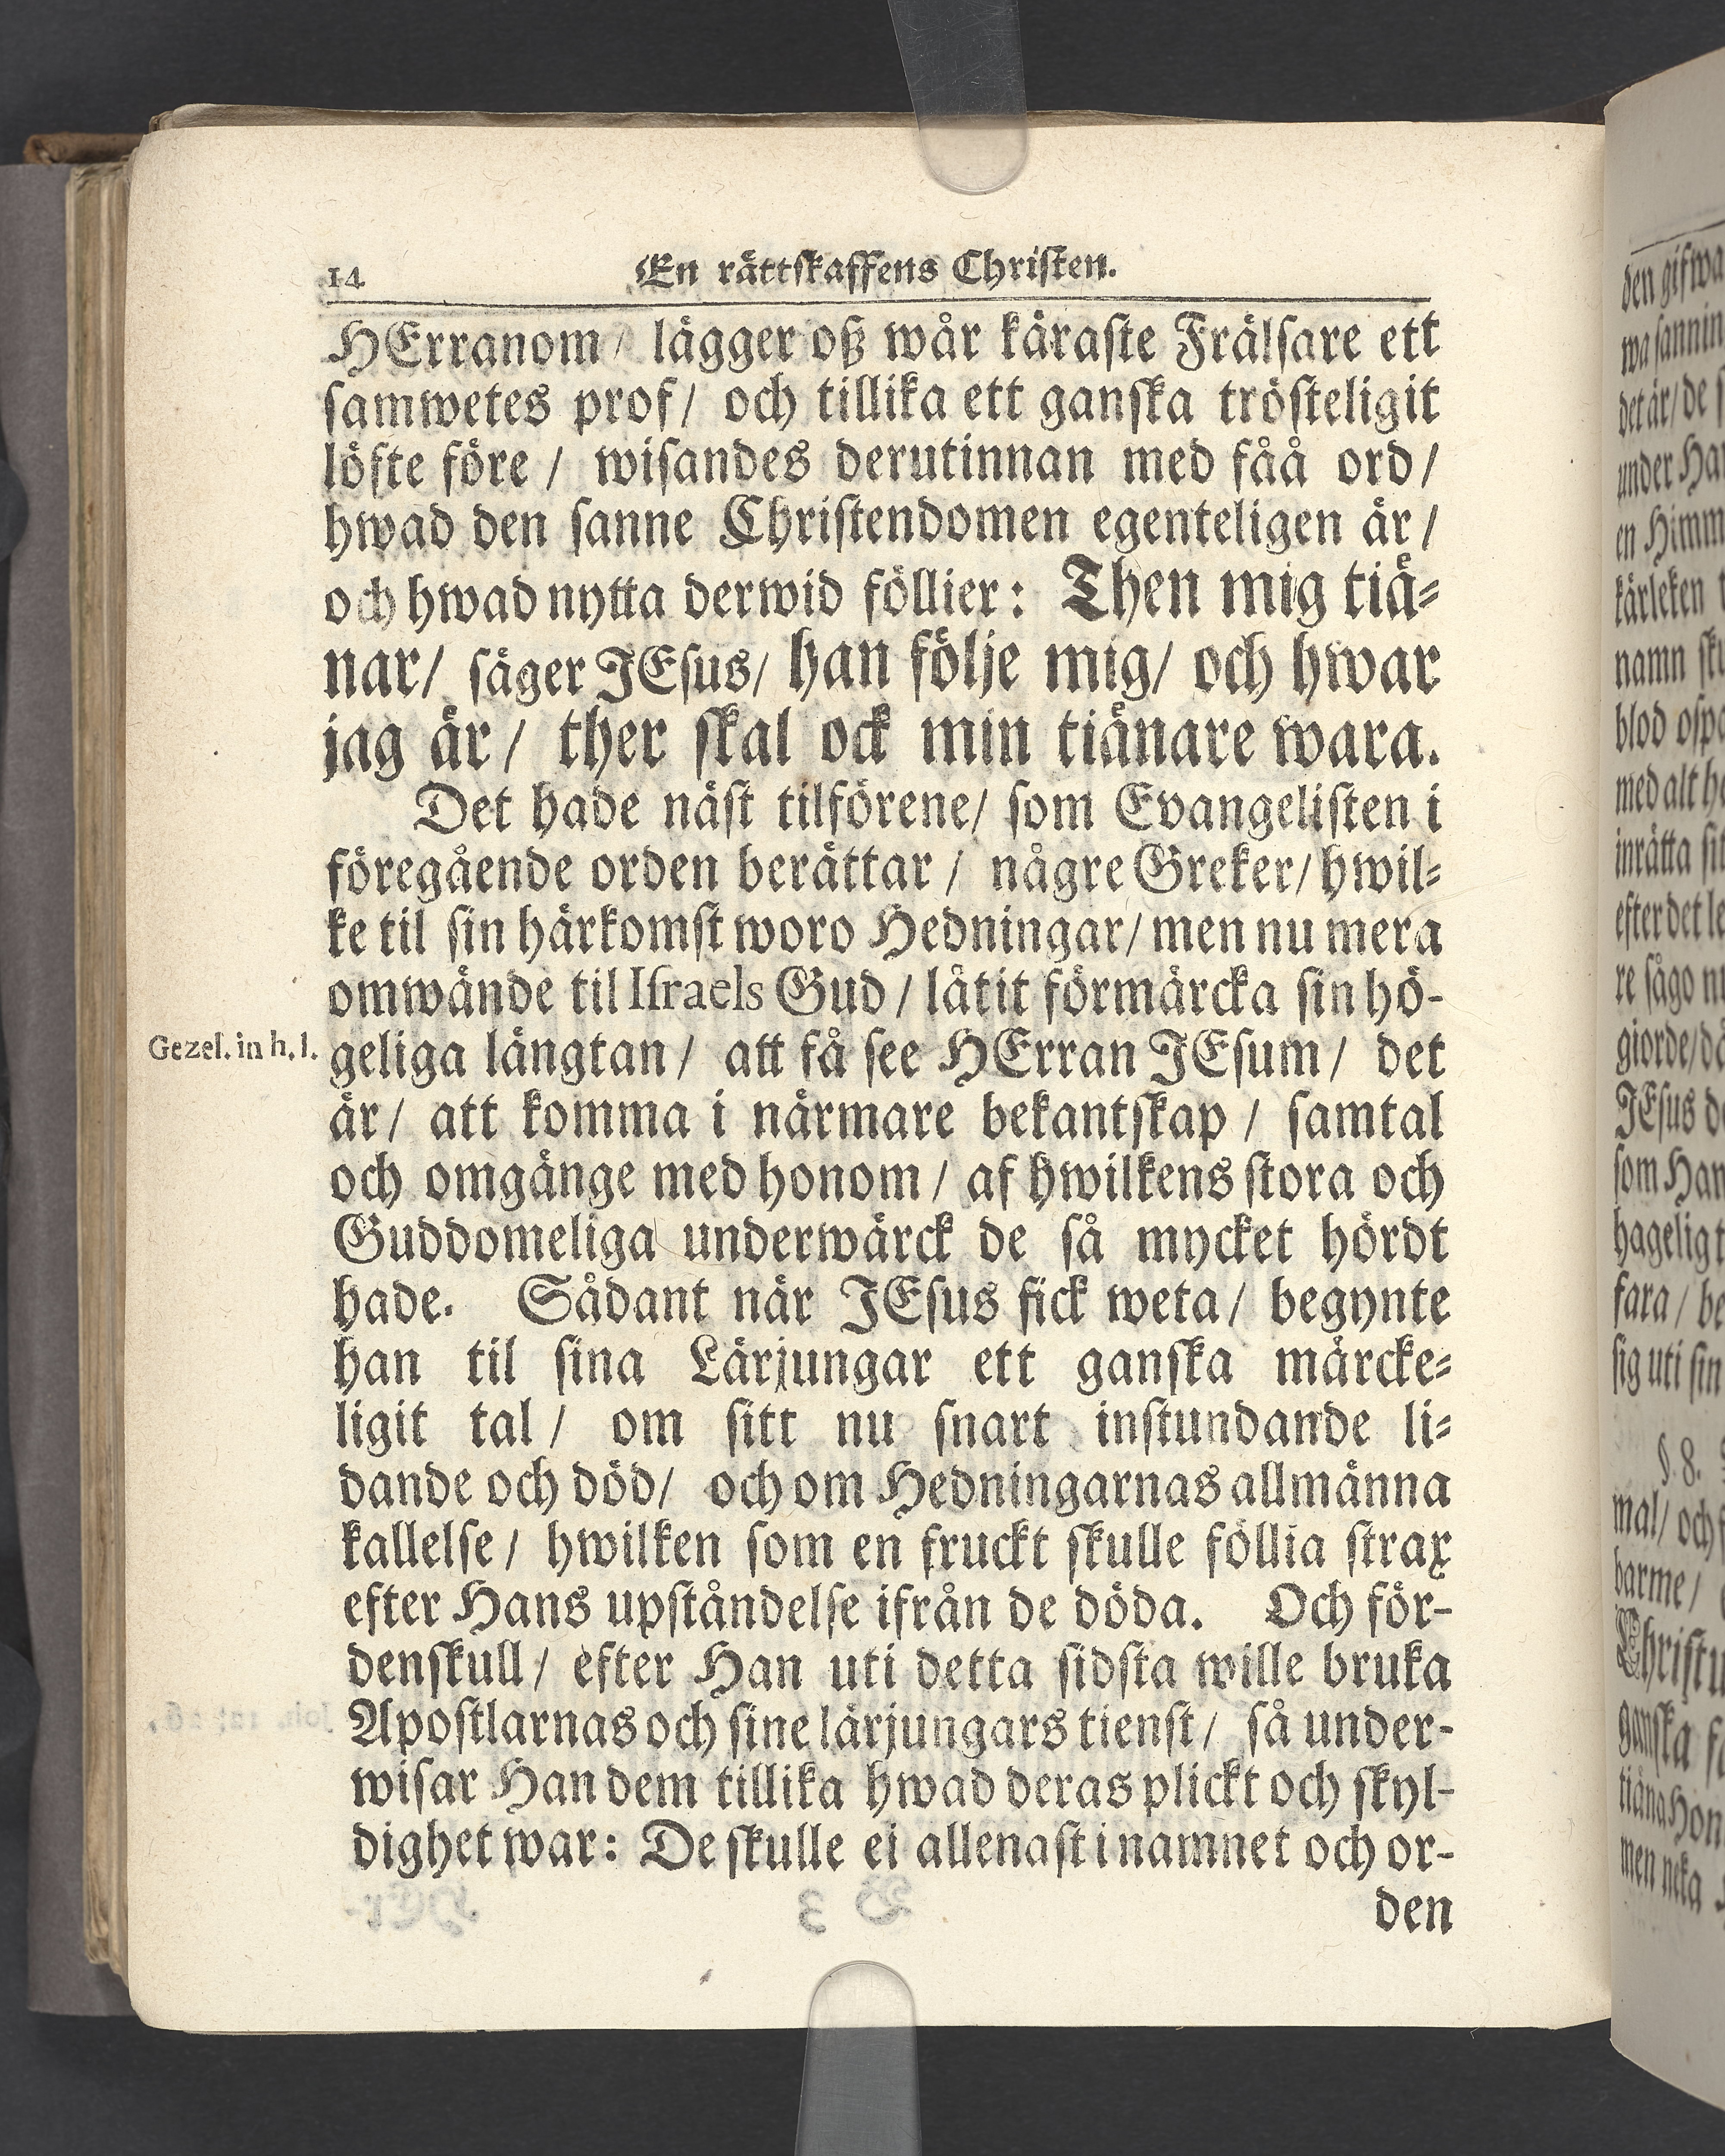 14 En rättskaffens Christen.
HErranom/ lägger oß wår käraste Frälsare ett
samwetes prof/ och tillika ett ganska trösteligit
löfte före / wisandes derutinnan med fåå ord/
hwad den sanne Christendomen egenteligen är/
och hwad nytta derwid föllier: Then mig tiä-
nar/ säger JEsus/ han följe mig/ och hwar
jag är/ ther skal ock min tiänare wara.
Det hade näst tilförene/ som Evangelisten i
föregående orden berättar / några Greker/ hwil-
ke til sin härkomst woro Hedningar/ men nu mera
omwände til Israels Gud / låtit förmärcka sin hö-
Gezel. in h. l.
geliga längtan/ att få see HErran JEsum/ det
är/ att komma i närmare bekantskap / samtal
och omgänge med honom/ af hwilkens stora och
Guddomeliga underwärck de så mycket hördt
hade. Sådant när JEsus fick weta/ begynte
han til sina Lärjungar ett ganska märcke-
ligit tal/ om sitt nu snart instundande li-
dande och död/ och om Hedningarnas allmänna
kallelse/ hwilken som en fruckt skulle föllia strax
efter Hans upståndelse ifrån de döda. Och för-
denskull/ efter Han uti detta sidsta wille bruka
Apostlarnas och sine lärjungars tienst/ så under-
wisar Han dem tillika hwad deras plickt och skyl-
dighet war: De skulle ei allenast i namnet och or-
den